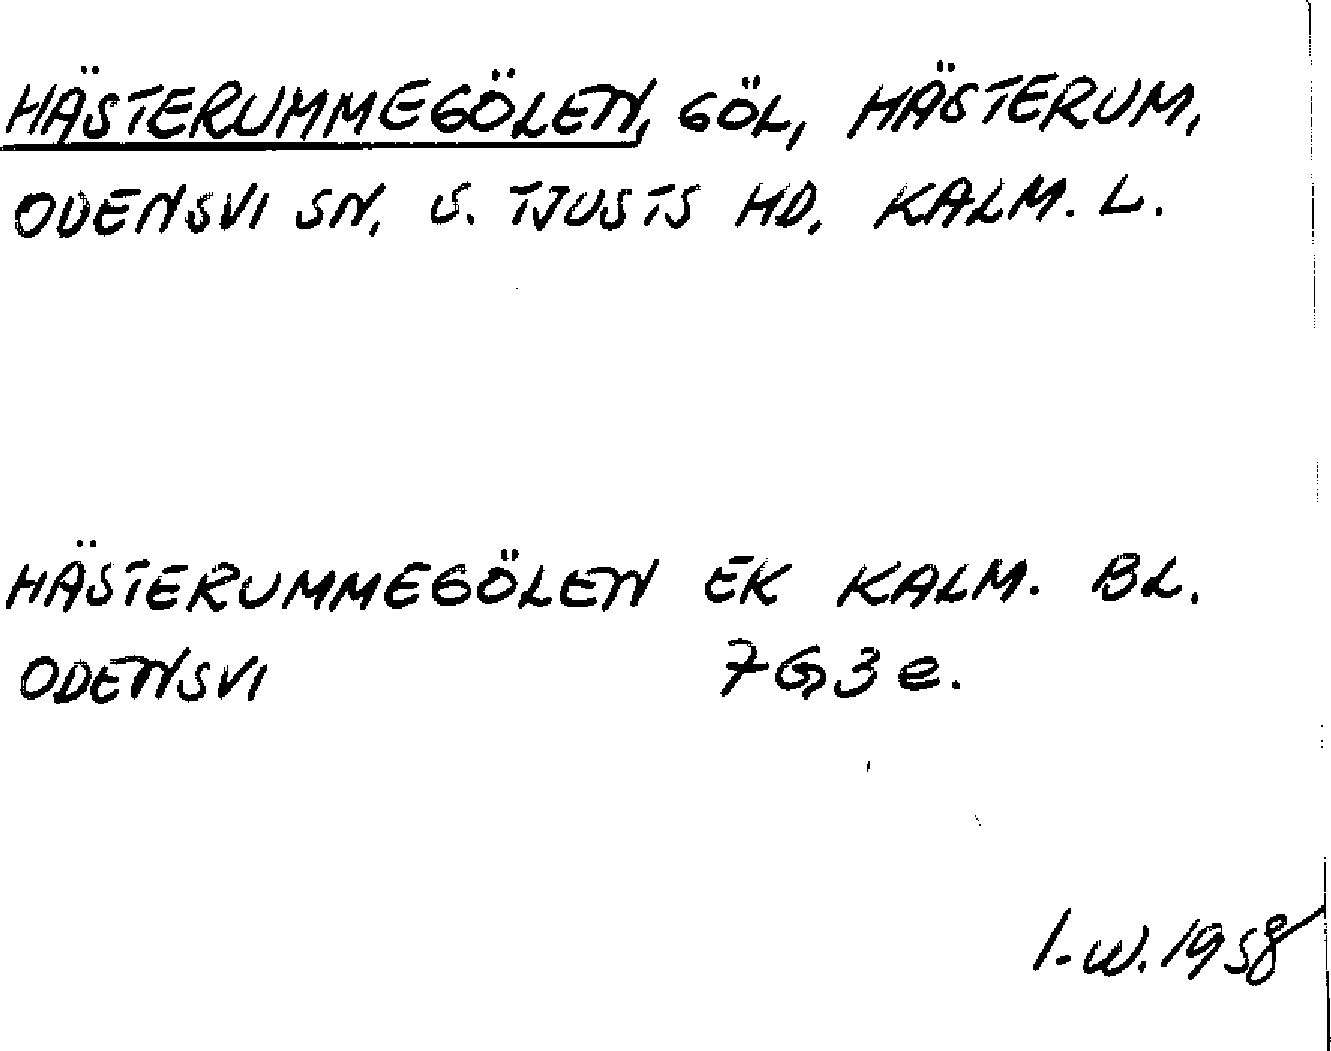 HÄSTERUMMEGÖLEN, GÖL, HÄSTERUM,
ODENSVI SN, S. TJUSTS HD, KALM. L.
HÄSTERUMMEGÖLEN EK KALM. BL.
ODENSVI 7G3e.
I-W. 1958